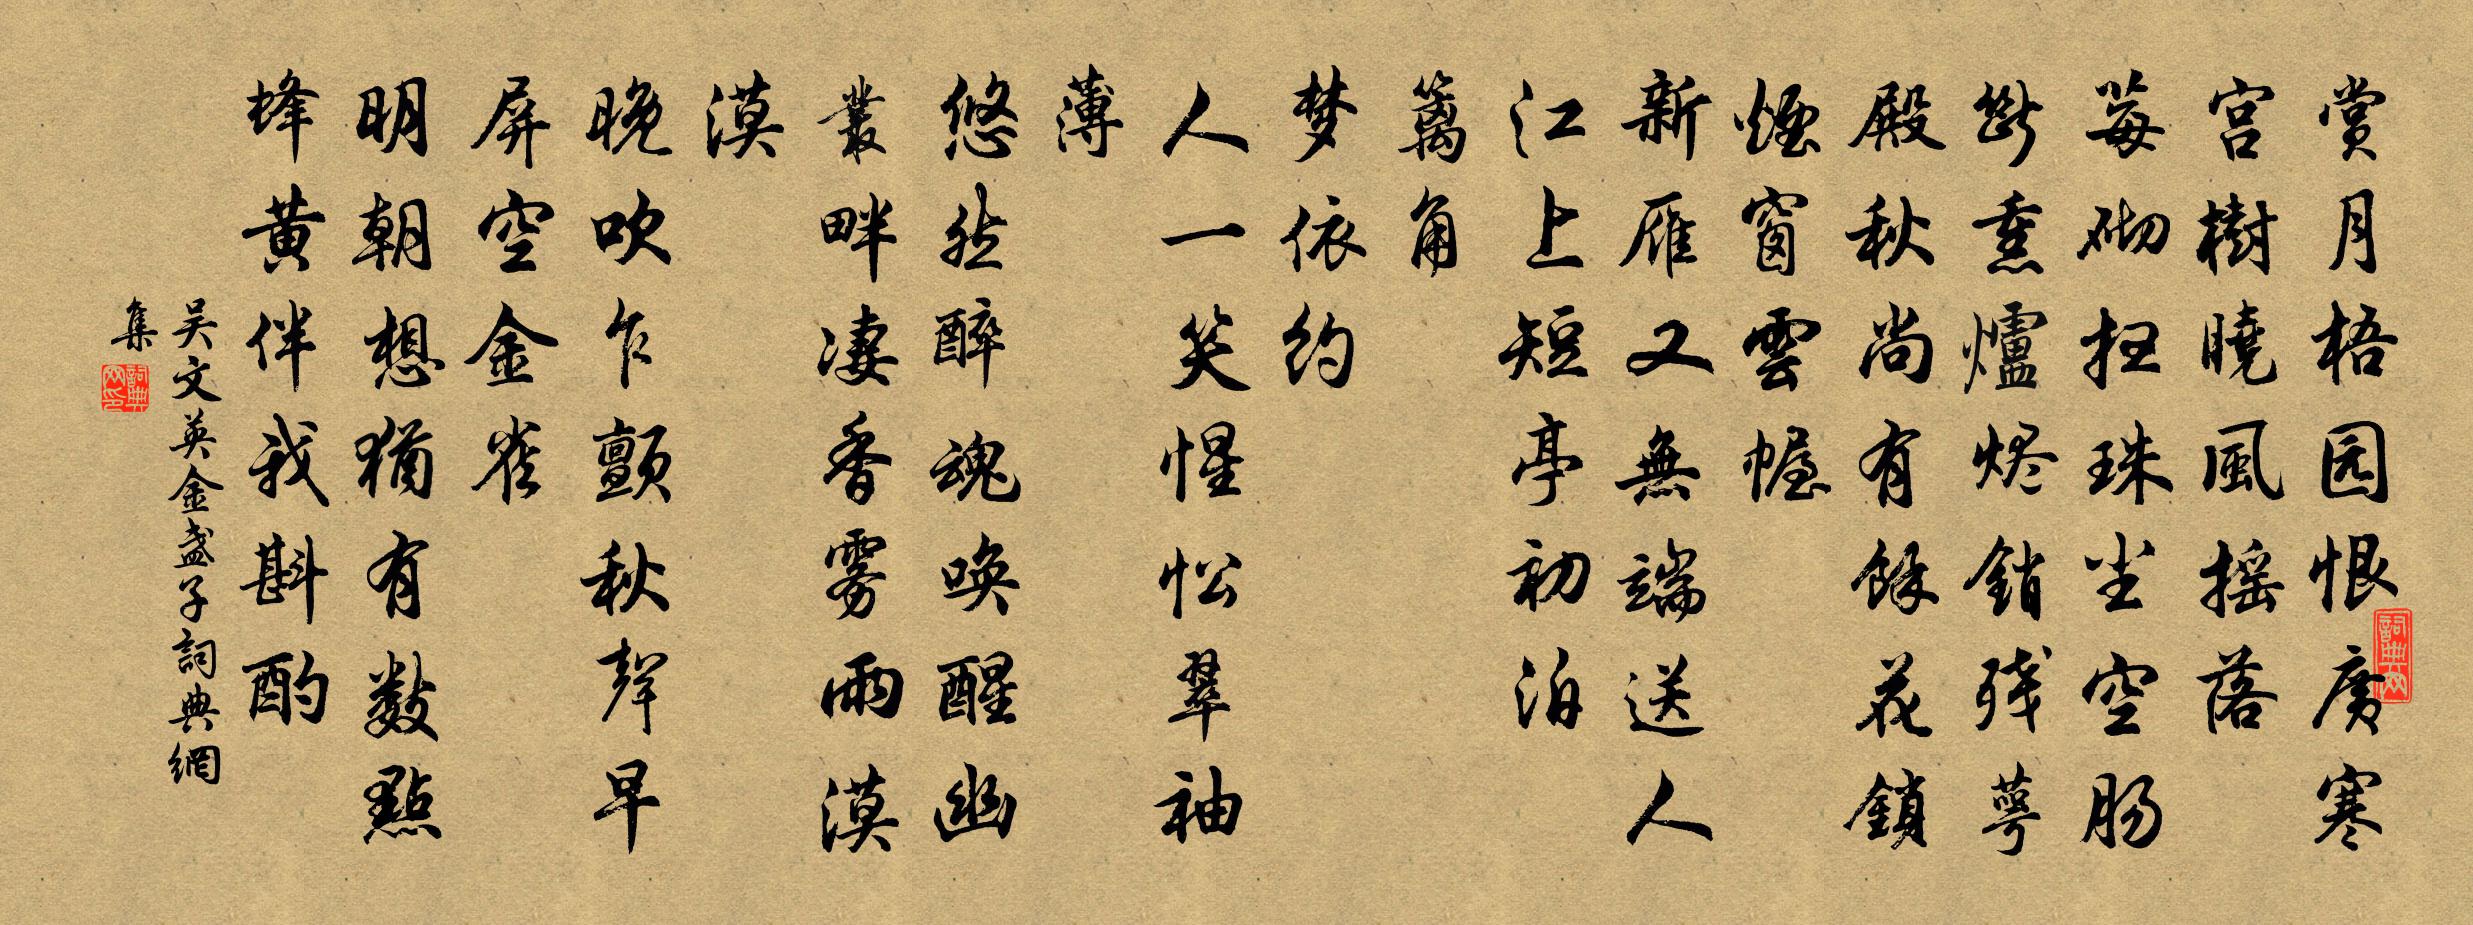 赏月梧园恨廣寒
宫樹曉風摇落
莓砌扫珠尘空肠
断熏爐烬銷残萼
殿秋尚有餘花鎖
煙窗雲幄
新雁又無端送人
江上短亭初泊
篱角
梦依约
人一笑惺忪翠袖
薄
悠然醉魂唤醒幽
叢畔凄香雾雨漠
漠
晚吹乍颤秋聲早
屏空金雀
明朝想猶有数點
蜂黄伴我斟酌
吴文英金盏子詞典網
集
詞典网
詞典网印